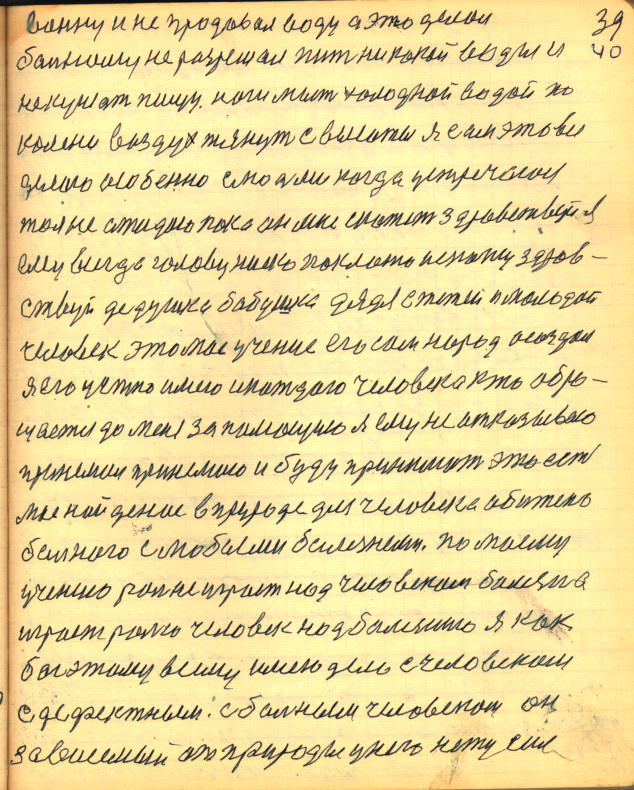 39
ванну и не продовал воду а это делал
40
больному не разрешал пит никокой воды и
некушат пищу. ноги мыт холодной водой по
колени воздух тянут свысоты я сам это все
делаю особенно слюдьми когда устречаюсь
то я не ожидаю пока он мне скажет здравствуй я
ему всегда голову ниско поклоню искажу здрав-
ствуй дедушка бабушка дядя стетей и молодой
человек это мое учение его сам народ осаздал
я его учтно имею икаждого человека кто обра-
щается до меня за помощию я ему не отказываю
принемал принемаю и буду принимат это ест
мое найденое в природе для человека обижено
болного слюбыми болезнеми. по моему
учению роля играт над человеком болезня
играет ролю человек надболезнию я как
бог этому всему имею дело счеловеком
сдефектным. сбольным человеком он
зависемый от природы унего нету сил